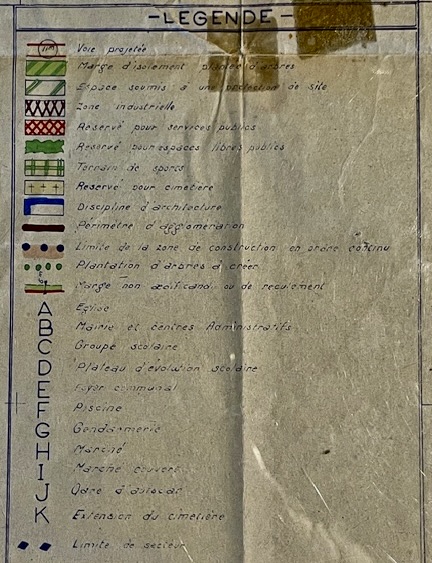 -LEGENDE-
Voie projetée
Marge d'isolement plantée d'arbres
Espace soumis à une protection de site
Zone industrielle
Réservé pour services publics
Réservé pour espaces libres publics
Terrain de sports
Réservé pour cimetière
Discipline d'architecture
Périmètre d'agglomération
Limite de la zone de construction en ordre continu
Plantation d'arbres à créer
Marge non aedificandi ou de reculement
A Eglise
B Mairie et centres Administratifs
C Groupe scolaire
D Plateau d'évolution scolaire
E Foyer communal
F Piscine
G Gendarmerie
H Marché
I Marché couvert
J Gare d'autocar
K Extension du cimetière
Limite de secteur